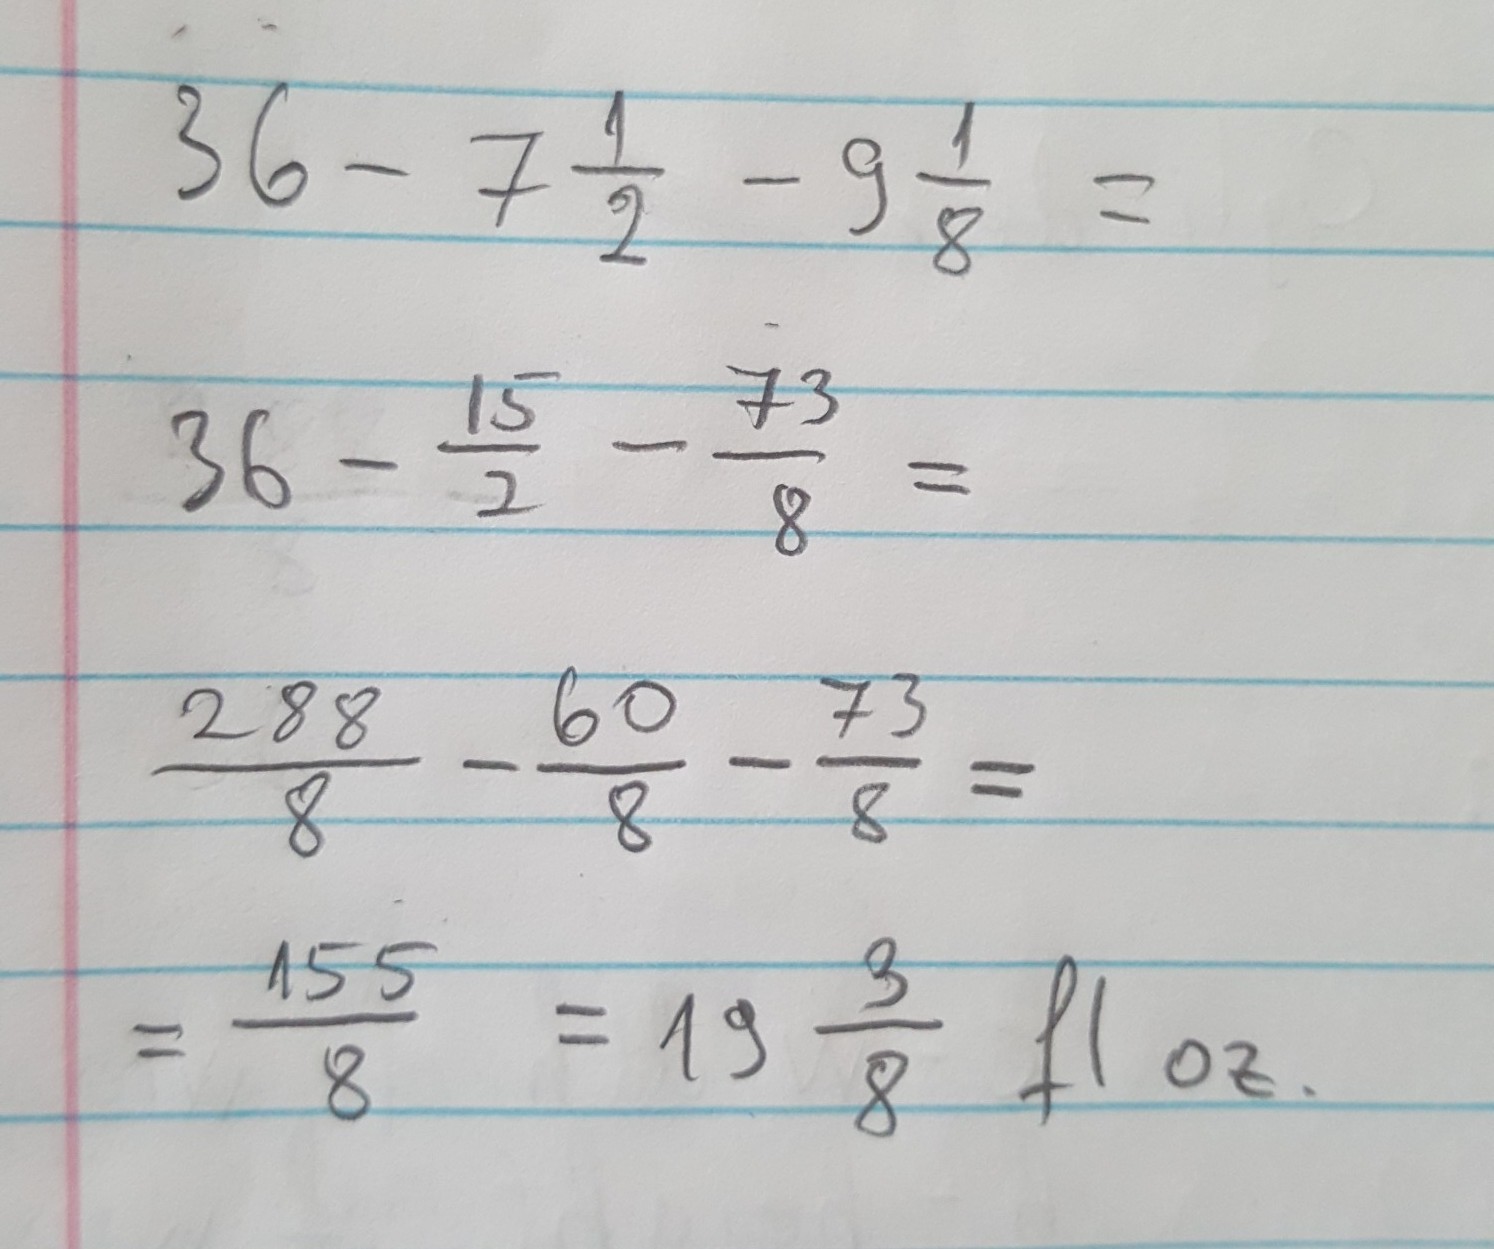 36 - 7 1/2 - 9 1/8 =
36 - 15/2 - 73/8 =
288/8 - 60/8 - 73/8 =
= 155/8 = 19 3/8 fl oz.